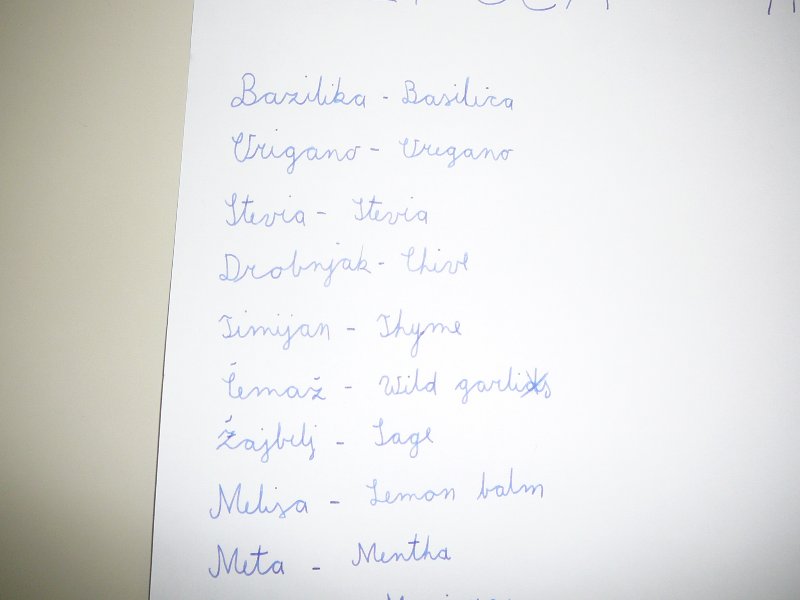 Bazilika - Basilica
Origano - Oregano
Stevia - Stevia
Drobnjak - Chive
Timijan - Thyme
Čemaž - Wild garlic
Žajbelj - Sage
Melisa - Lemon balm
Meta - Mentha